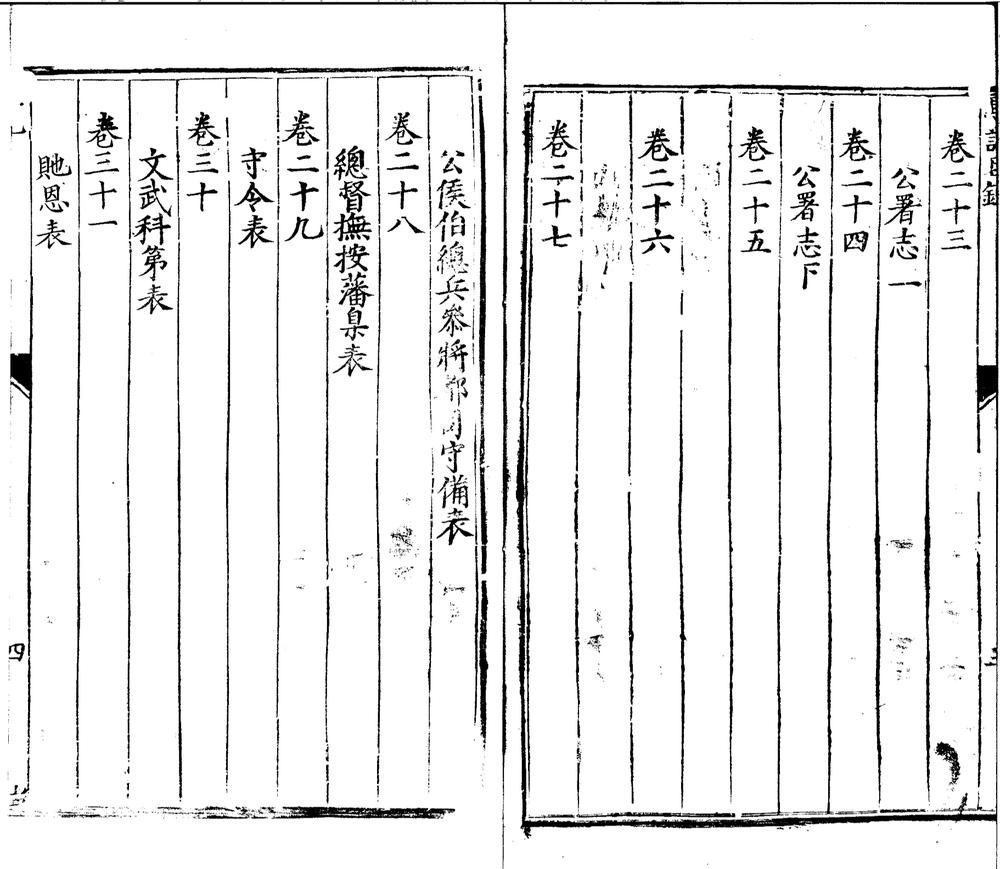 卷二十三
公署志一
卷二十四
公署志下
卷二十五
卷二十六
卷二十七
公侯伯總兵參將都司守備表
卷二十八
總督撫按藩臬表
卷二十九
守令表
卷三十
文武科第表
卷三十一
貤恩表
四